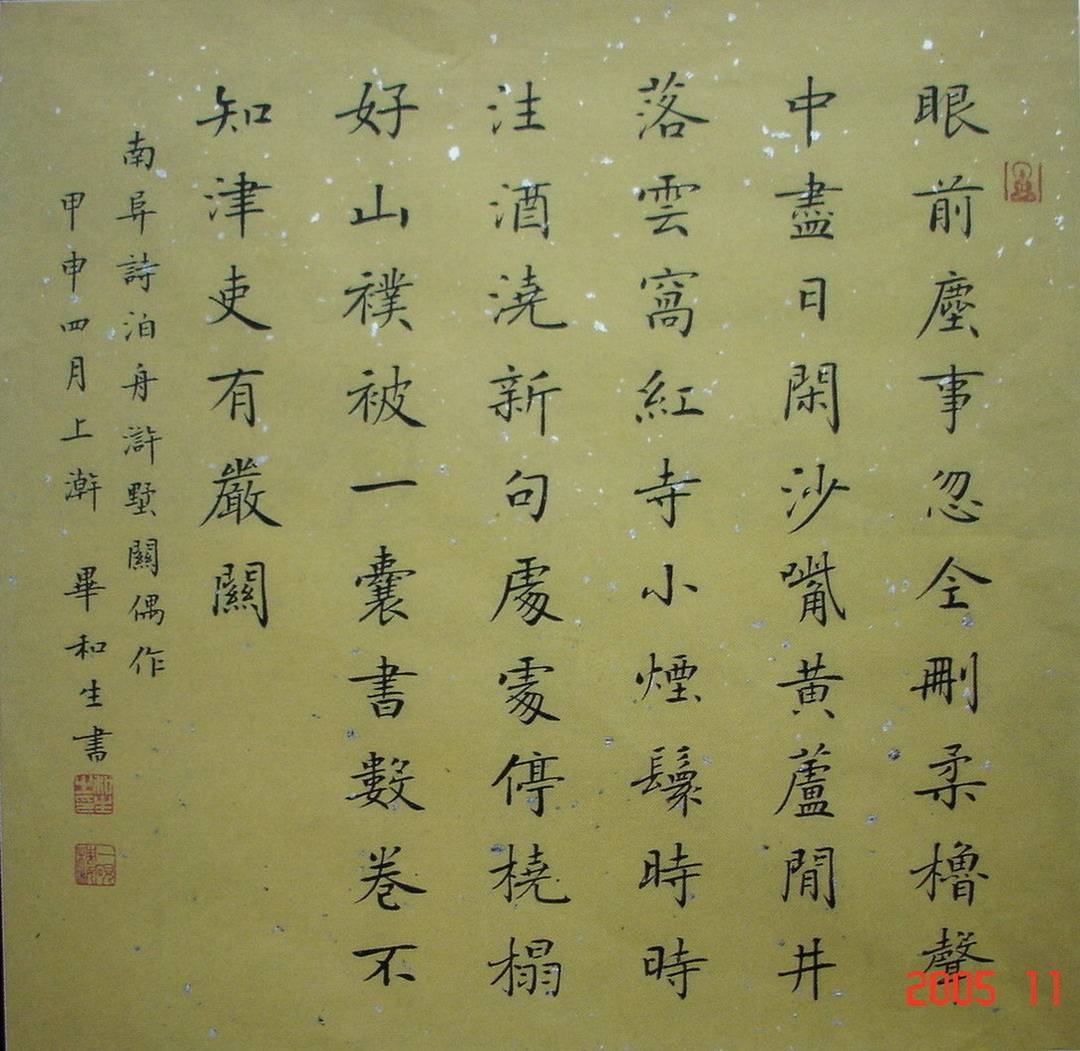 眼前塵事忽全刪柔櫓聲
中盡日閑沙嘴黃蘆閒井
落雲窩紅寺小煙鬟時時
注酒澆新句處處停橈榻
好山襆被一囊書數卷不
知津吏有嚴關
南阜詩泊舟滸墅關偶作
甲申四月上澣 畢和生書
2005 11